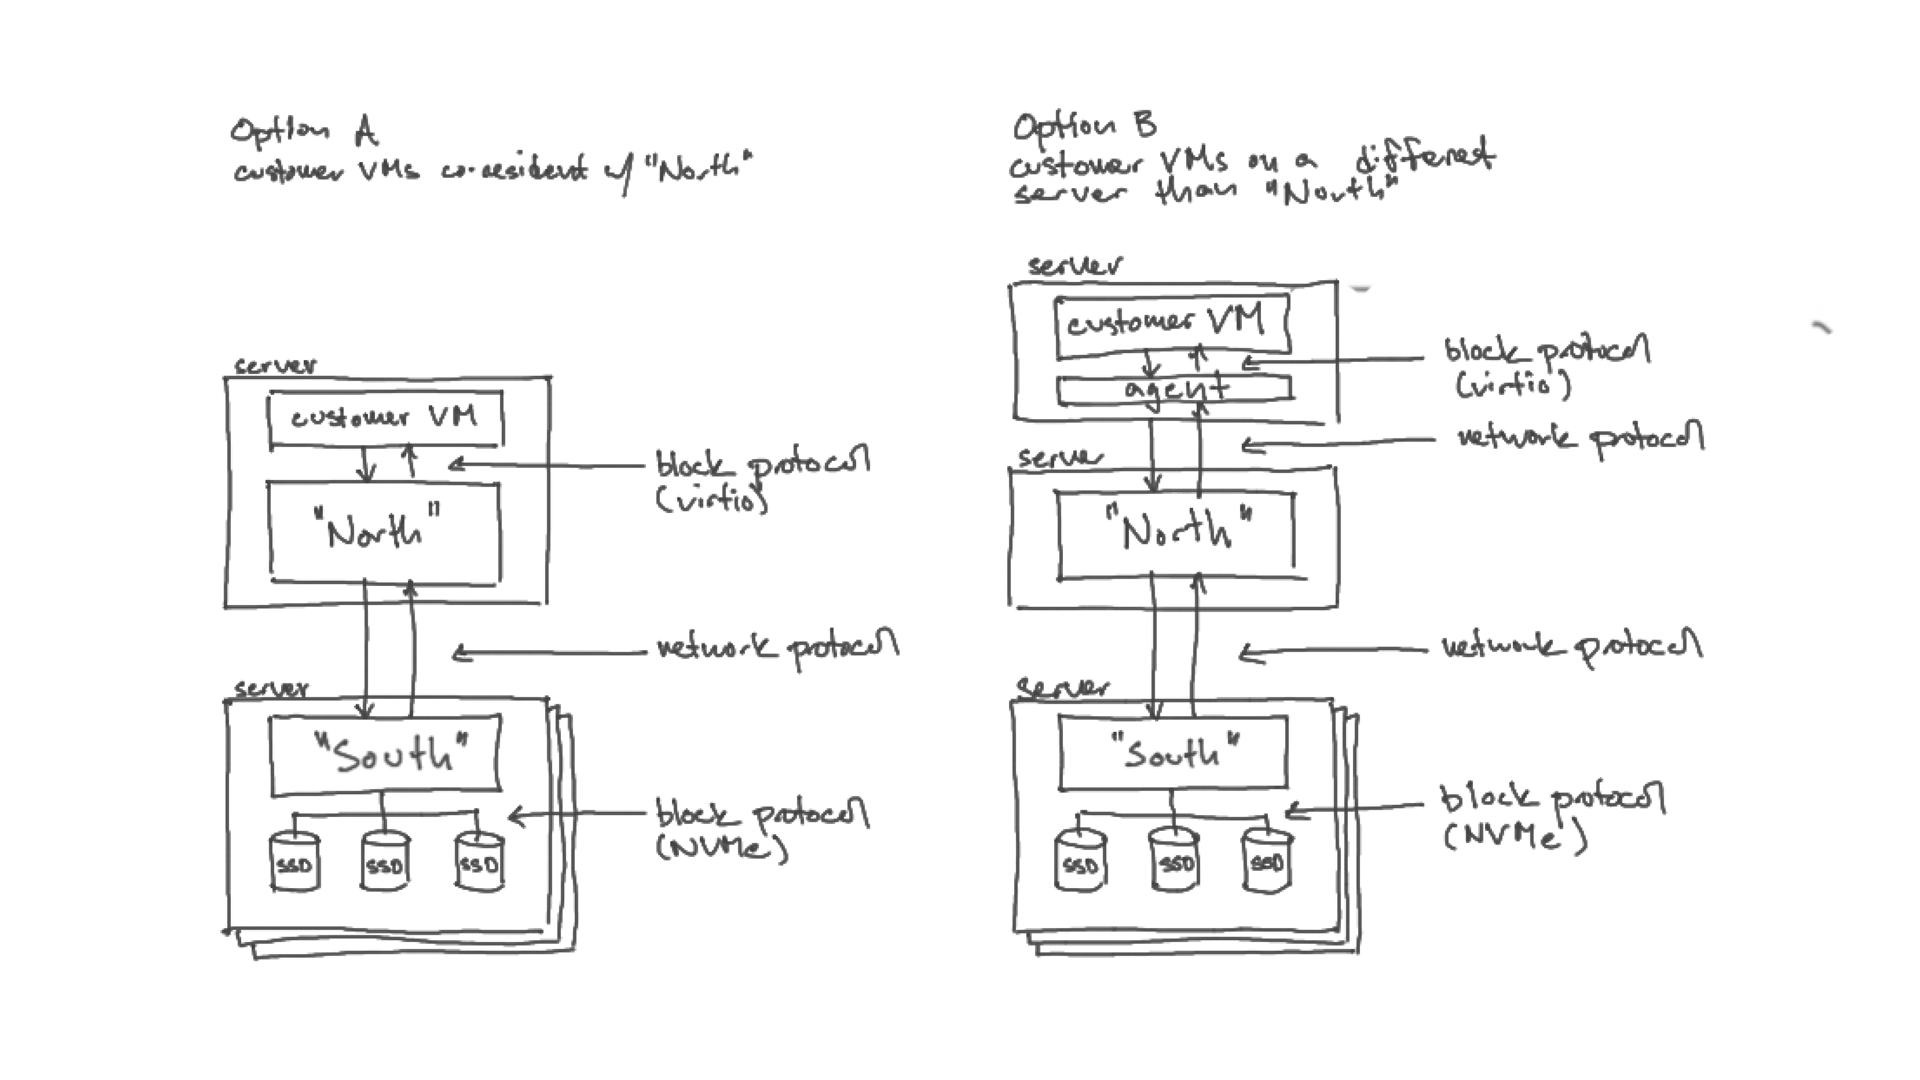 Option A
customer VMs co-resident w/ "North"
server
customer VM
"North"
block protocol
(virtio)
network protocol
server
"South"
SSD SSD SSD
block protocol
(NVMe)
Option B
customer VMs on a different
server than "North"
server
customer VM
agent
block protocol
(virtio)
network protocol
server
"North"
network protocol
server
"South"
SSD SSD SSD
block protocol
(NVMe)